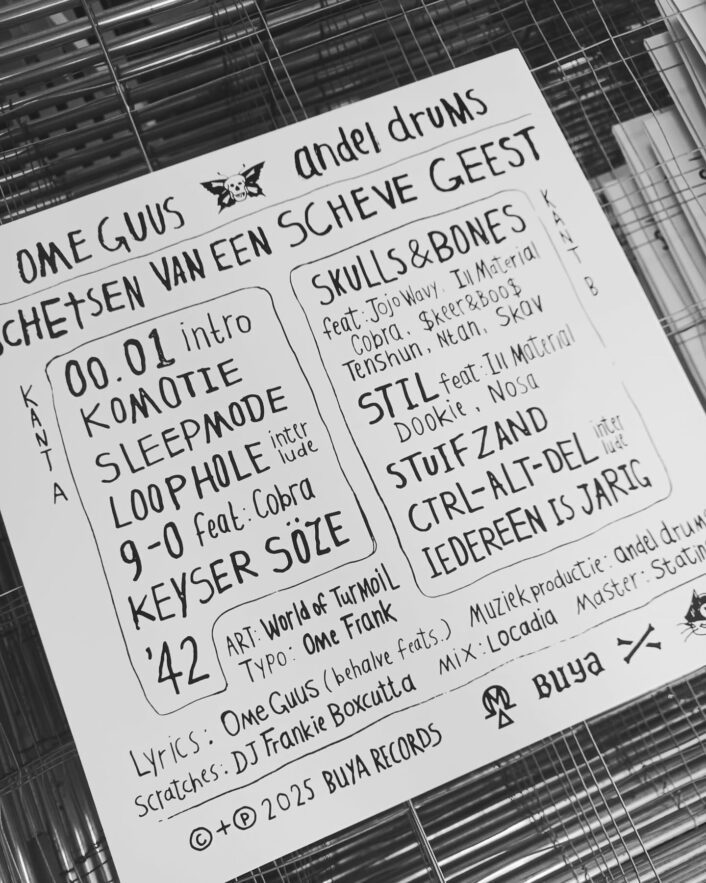 OME GUUS andel drums
SCHETSEN VAN EEN SCHEVE GEEST
KANT A
00.01 intro
KOMOTIE
SLEEPMODE
LOOPHOLE interlude
9-0 feat: Cobra
KEYSER SÖZE
'42
KANT B
SKULLS & BONES
feat: JoJo Wavy, Ill Material
Cobra, $keer&Boo$
Tenshun, Ntan, Skav
STIL feat: Ill Material
Dookie, Nosa
STUIFZAND
CTRL-ALT-DEL interlude
IEDEREEN IS JARIG
ART: World of Turmoil
TYPO: Ome Frank
Lyrics: Ome Guus (behalve feats.) Muziekproductie: andel drums
Scratches: DJ Frankie Boxcutta Mix: Locadia Master:
©+℗ 2025 BUYA RECORDS BUYA